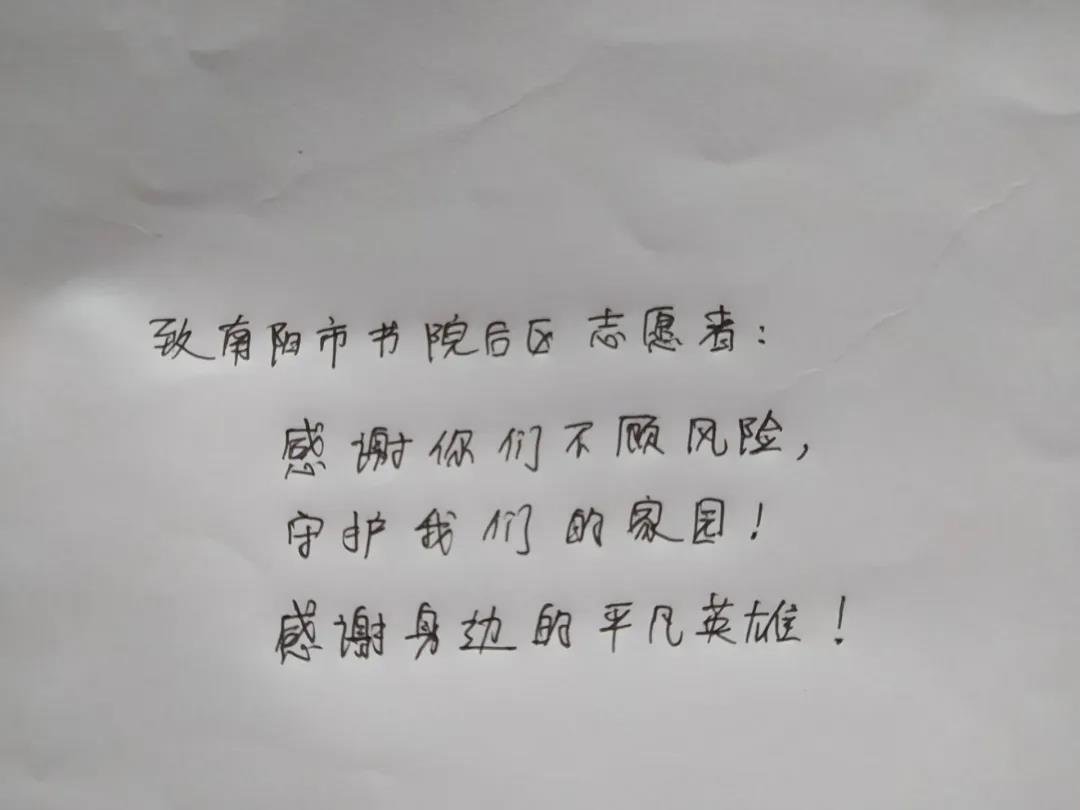 致南阳市书院后区志愿者：
感谢你们不顾风险，
守护我们的家园！
感谢身边的平凡英雄！